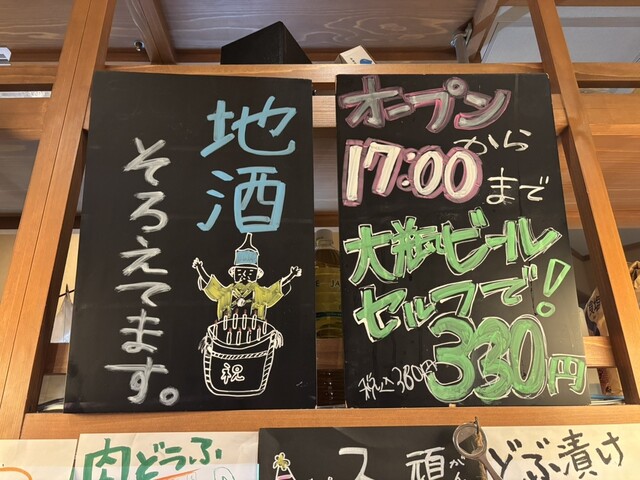 地酒
そろえてます。
祝
オープン
から
17:00まで
大瓶ビール
セルフで!
330円
税込360円
肉どうふ
ス
頑
がん
どぶ漬け